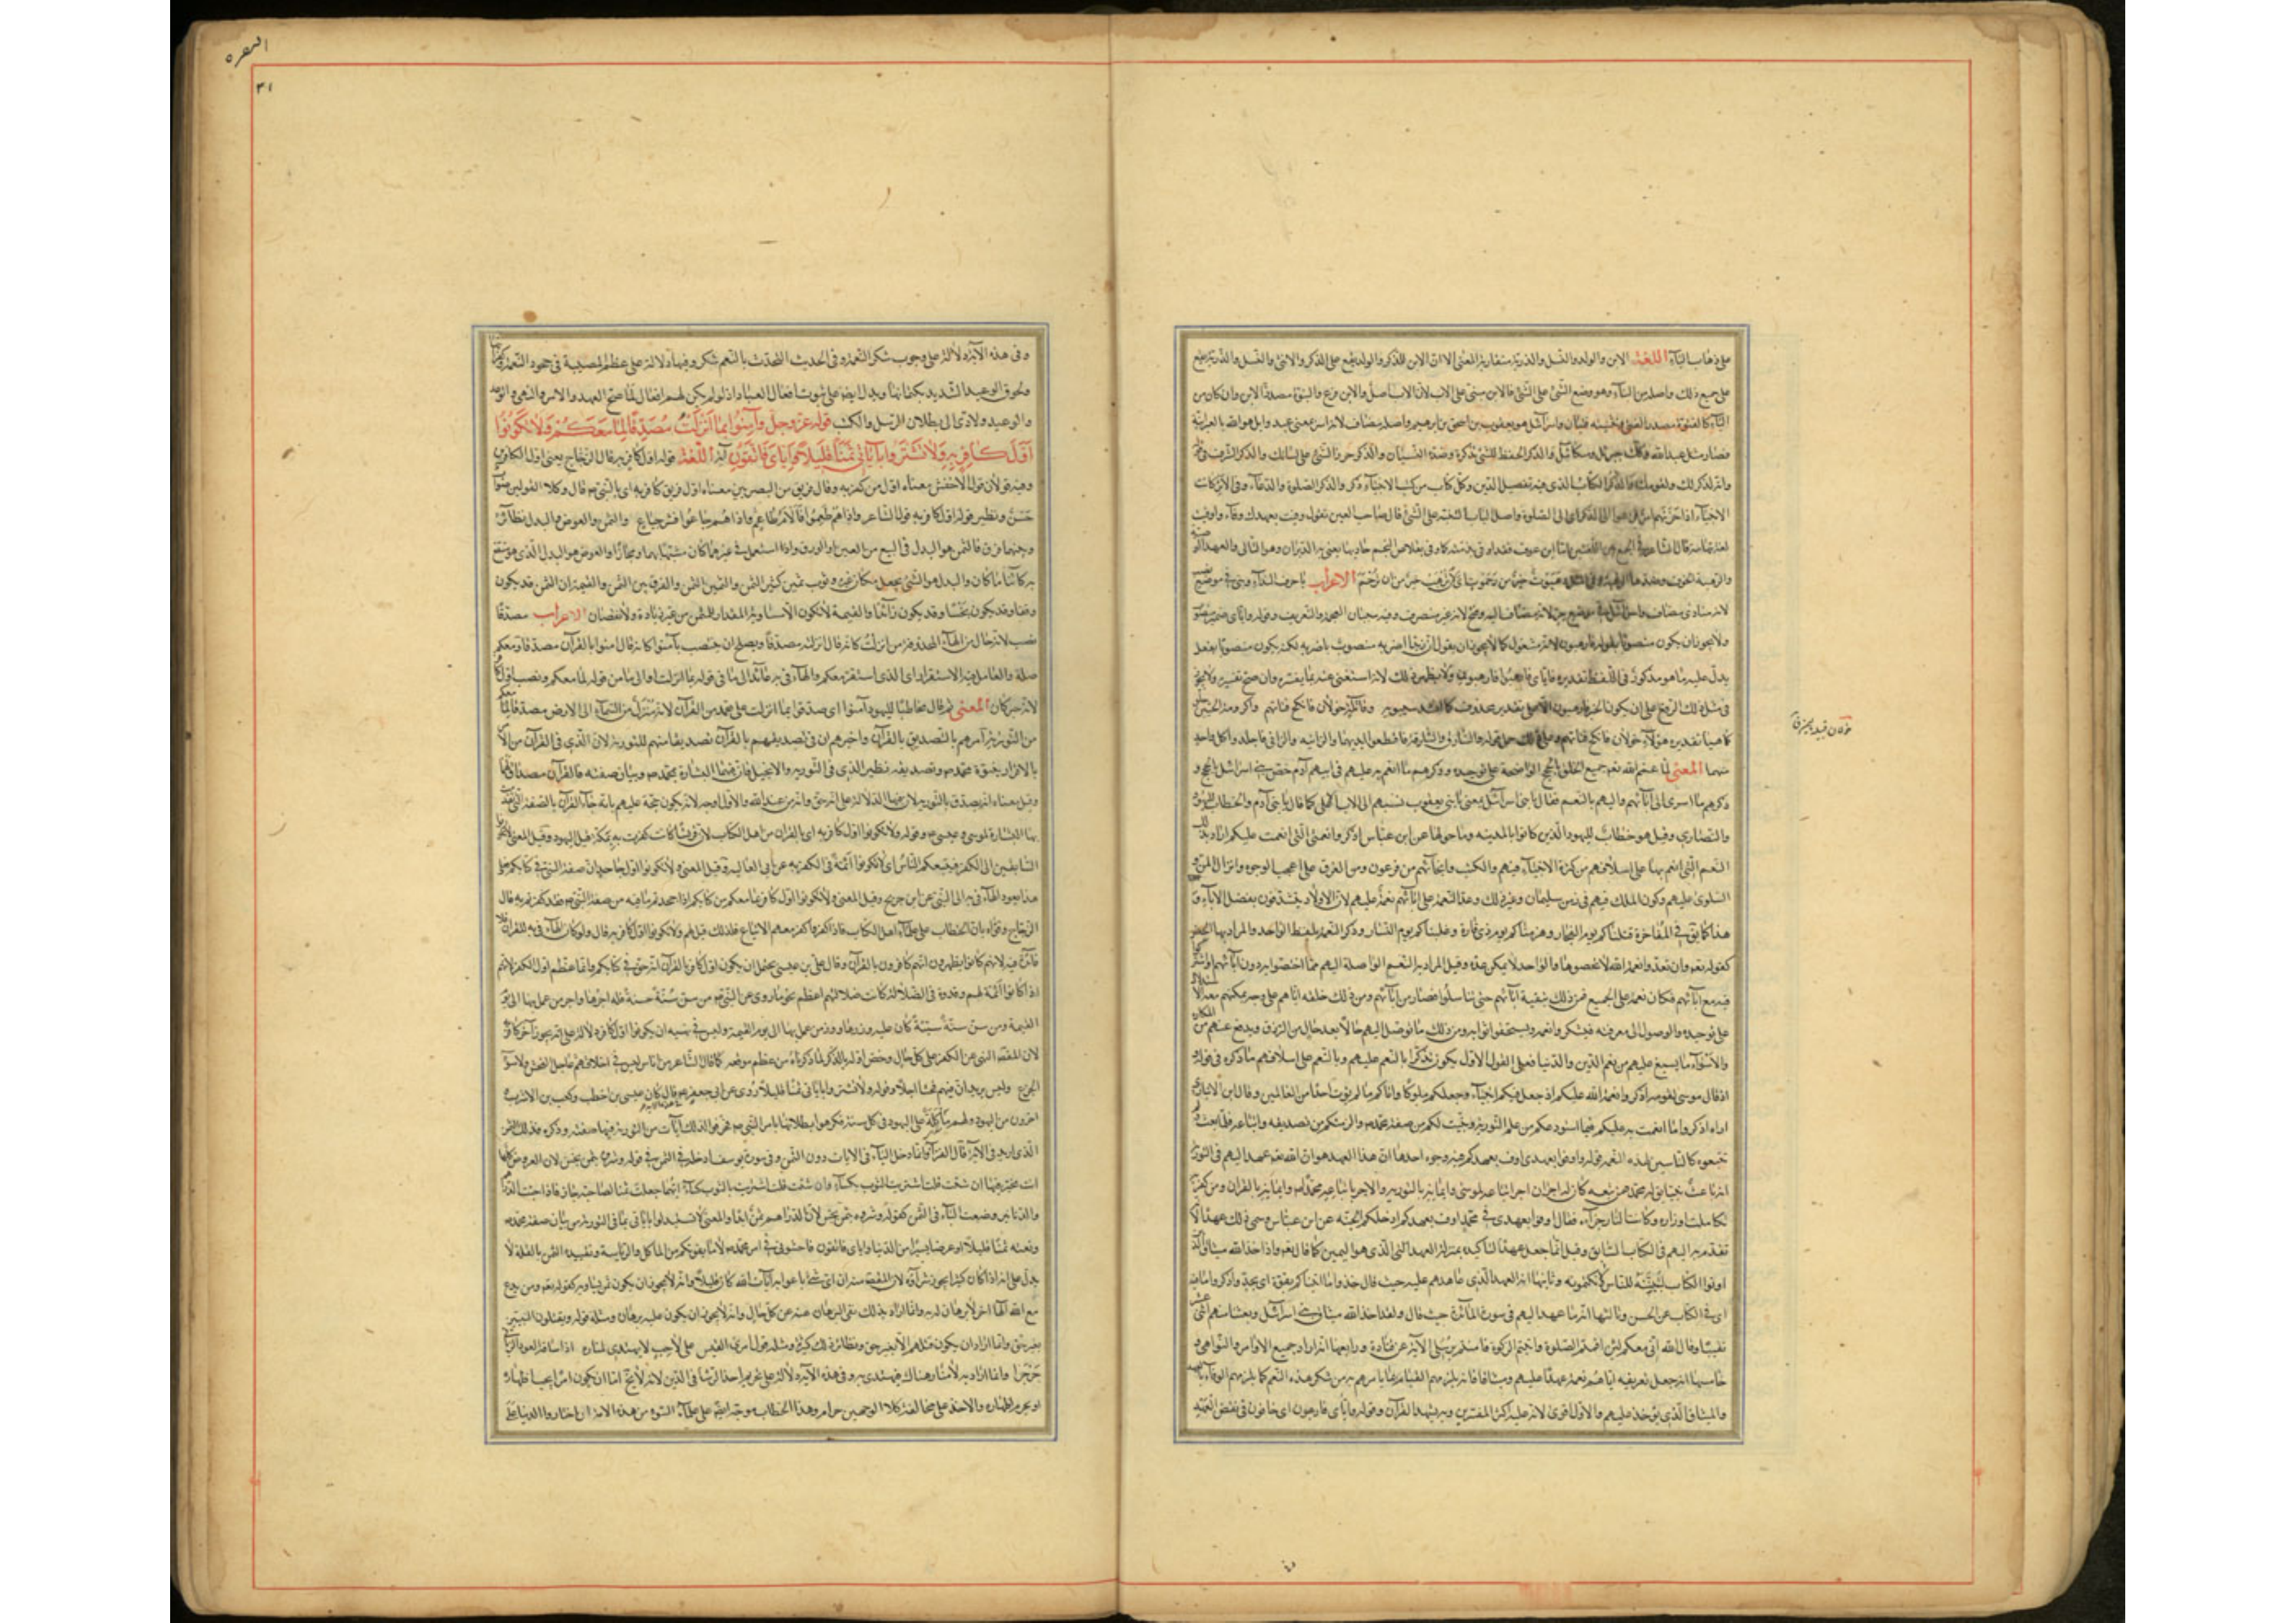 على ذهاب التآء اللغة الابن والولد والنسل والذرية متقاربة المعنى الا ان الابن للذكر والولد يقع على الذكر والانثى والنسل والذرية يقع
على جميع ذلك واصله من البنآء وهو وضع الشئ على الشئ فالابن مبنى على الاب لان الاب اصل والابن فرع والبنوّة مصدر الابن وان كان من
اليآء كالفتوّة مصدر الفتى وتثنيته فتيان واسرآئيل هو يعقوب بن اسحق بن ابرهيم واصله مضاف لانّ اسر معنى عبد وايل هو الله بالعبرانية
فصار مثل عبد الله وكذلك جبرئل وميكائيل والذكر الحفظ للشئ بذكره وضده النسيان والذكر جرى الشئ على لسانك والذكر الشرف فى قوله
وانه لذكر لك ولقومك والذكر الكتاب الذى فيه تفصيل الدين وكل كتاب من كتب الانبيآء ذكر والذكر الصلوة والدعآء وفى الاثر كانت
الانبيآء اذا حزنهم امر فزعوا الى الذكر اى الى الصلوة واصل الباب التنبيه على الشئ قال صاحب العين تقول وفيت بعهدك وفآء واوفيت
لغة تهامة قال الشاعر فى الجمع بين اللغتين امّا ابن عوف فقد اوفى بذمته كما وفى بقلاص النجم حاديها يعنى به الدبران وهو التالى والعهد الوصية
والرهبة الخوف وضدها الرغبة وفى المثل رهبوت خير من رحموت اى لان ترهب خير من ان ترحم الاعراب يا حرف الندآء وبنى فى موضع نصب
لانه منادى مضاف واسرآئيل فى موضع جر لانه مضاف اليه وفتح لانه غير منصرف وفيه سببان العجمة والتعريف وقوله واياى ضمير منصوب
ولا يجوز ان يكون منصوبا بقوله فارهبون لانه مشغول كما لا يجوز ان يقول ان زيدا اضربه منصوب باضربه لكنه يكون منصوبا بفعل
يدل عليه ما هو مذكور فى اللفظ تقديره فاياى فارهبوا فارهبون ولا يظهر ذلك لانه استغنى عنه بما يفسره وان صح تفسيره ولا يجوز
فى مثله ذلك الرفع على ان يكون الخبر فارهبون الا على تقدير محذوف كما انشد سيبويه وقائلة خولان فانكح فتاتهم واكرومة الحيين خلو
كما هيا تقديره هولآء خولان فانكح فتاتهم وعلى ذلك حمل قوله والسارق والسارقة فاقطعوا ايديهما والزانية والزانى فاجلدوا كل واحد
منهما المعنى لمّا عم الله تعم جميع الخلق بالحجج الواضحة على توحيده وذكرهم ما انعم به عليهم فى ابيهم آدم خص بنى اسرائيل بالحجج و
ذكرهم ما اسرى الى آبآئهم واليهم بالنعم فقال يا بنى اسرآئيل يعنى يا بنى يعقوب نسبهم الى الاب الاعلى كما قال يا بنى آدم والخطاب لليهود
والنصارى وقيل هو خطاب لليهود الذين كانوا بالمدينه وما حولها عن ابن عباس اذكروا نعمتى التى انعمت عليكم اراد بذلك
النعم التى انعم بها على اسلافهم من كثرة الانبيآء فيهم والكتب وانجآئهم من فرعون ومن الغرق على اعجب الوجوه وانزال المن و
السلوى عليهم وكون الملك فيهم فى زمن سليمان وغير ذلك وعد النعمة على آبآئهم نعمة عليهم لان الاولاد يتشرفون بفضل الآبآء و
هذا كما يق فى المفاخرة قتلناكم يوم الفجار وهزمناكم يوم ذى قارة وغلبناكم يوم النسار وذكر النعمة بلفظ الواحد والمراد بها الجنس
كقوله تعم وان تعدوا نعمة الله لا تحصوها والواحد لا يمكن عده وقيل المراد به النعم الواصلة اليهم مما اختصوا به دون آبآئهم او اشتركوا
فيه مع آبآئهم فكان نعمة على الجميع فمن ذلك تبقية آبآئهم حتى تناسلوا فصار من ابآئهم ومن ذلك خلقه اياهم على وجه يمكنهم معه الاستدلال
على توحيده والوصول الى معرفته فيشكروا نعمه ويستحقوا ثوابه ومن ذلك ما توصل اليهم حالا بعد حال من الرزق ويدفع عنهم من المكاره
والاسوآء ما يسبغ عليهم من نعم الدين والدنيا فعلى القول الاول يكون تذكيرا بالنعم عليهم وبالنعم على اسلافهم ما ذكره فى قوله
اذ قال موسى لقومه اذكروا نعمة الله عليكم اذ جعل فيكم انبيآء وجعلكم ملوكا واتاكم ما لم يؤت احدا من العالمين وقال ابن الانبارى
اراد اذكروا ما انعمت به عليكم فيما استودعتكم من علم التورية وبينت لكم من صفة محمّد ص والزمتكم من تصديقه واتباعه فلمّا بعث ولم
تتبعوه كالناسين لهذه النعمة وقوله واوفوا بعهدى اوف بعهدكم فيه وجوه احدها ان هذا العهد هو ان الله تعم عهد اليهم فى التورية
انه باعث نبيا يق له محمّد فمن تبعه كان له اجران اجر اتباعه موسى وايمانه بالتورية والاجر باتباعه محمدا وايمانه بالقران ومن كفر به
تكاملت اوزاره وكانت النار جزآءه فقال اوفوا بعهدى فى محمّد اوف بعهدكم ادخلكم الجنّه عن ابن عباس وسمى ذلك عهدا لانه
تقدم به اليهم فى الكتاب السّابق وقيل انّما جعل عهدا لتأكيده بمنزلة العهد الذى هو اليمين كما قال تعم واذ اخذ الله ميثاق الذين
اوتوا الكتاب لتبيننه للناس ولا تكتمونه وثانيها انه العهد الذى عاهدهم عليه حيث قال خذوا ما اتيناكم بقوة اى بجد واذكروا ما فيه
اى فى الكتاب عن الحسن وثالثها انه ما عهد اليهم فى سورة المائدة حيث قال ولقد اخذ الله ميثاق بنى اسرآئيل وبعثنا منهم اثنى عشر
نقيبا وقال الله انّى معكم لئن اقمتم الصلوة واتيتم الزكوة وامنتم برسلى الآية عن قتادة ورابعها انه اراد جميع الاوامر والنواهى و
خامسها انه جعل تعريفه ايّاهم نعمه عهدا عليهم وميثاقا لانه يلزمهم القيام بما يامرهم به من شكر هذه النعم كما يلزمهم الوفآء بالعهد
والميثاق الذى يؤخذ عليهم والاول اقوى لانه عليه اكثر المفسرين وبه يشهد القرآن وقوله واياى فارهبون اى خافون فى نقض العهد
البقره
٣١
وفى هذه الآية دلالة على وجوب شكر النعمة وفى الحديث التحدث بالنعم شكر وفيها دلالة على عظم المصيبة فى جحود النعمة وكفرانها
ولحوق الوعيد الشديد بكتمانها ويدل ايضا على ثبوت افعال العباد اذ لو لم يكن لهم افعال لما صح العهد والامر والنهى والوعد
والوعيد ولادى الى بطلان الرسل والكتب قوله عز وجل وَآمِنُوا بِمَا اَنْزَلْتُ مُصَدِّقًا لِمَا مَعَكُمْ وَلَا تَكُونُوا
اَوَّلَ كَافِرٍ بِهِ وَلَا تَشْتَرُوا بِآيَاتِى ثَمَنًا قَلِيلًا وَاِيَّاىَ فَاتَّقُونِ آية اللغة قوله اول كافر به قال الزجاج يعنى اول الكافرين
وفيه قولان قول الاخفش معناه اول من كفر به وقال فريق من البصريين معناه اول فريق كافر به اى بالنبى ص قال وكلا القولين صواب
حَسَنٌ ونظير قوله اول كافر به قول الشاعر واذا هم طعموا فالام طاعم واذا هم جاعوا فشر جياع والثمن والعوض والبدل نظائر
وبينهما فرق فالثمن هو البدل فى البيع من العين او الورق واذا استعمل فى غيرهما كان مشبها بهما ومجازا والعوض هو البدل الذى ينتفع
به كآئنا ما كان والبدل هو الشئ يجعل مكان غيره وثوب ثمين كثير الثمن والثمين الثمن والفرق بين الثمن والقيمة ان الثمن قد يكون
وفقا وقد يكون بخسا وقد يكون زآئدا والقيمة لا تكون الا مساوية المقدار للثمن من غير زيادة ولا نقصان الاعراب مصدقا
نصب لانه حال من الهآء المحذوفة من انزلت كانه قال انزلته مصدقا ويصلح ان ينتصب بآمنوا كانه قال امنوا بالقرآن مصدقا ومعكم
صلة والعامل فيه الاستقرار اى الذى استقر معكم والهآء فى به عآئدة الى ما فى قوله بما انزلت او الى ما من قوله لما معكم ونصب اول
لانه خبر كان المعنى ثم قال مخاطبا لليهود آمنوا اى صدقوا بما انزلت على محمد من القرآن لانه منزل من السمآء الى الارض مصدقا لما معكم
من التورية امرهم بالتصديق بالقرآن واخبرهم ان فى تصديقهم بالقرآن تصديقا منهم للتورية لان الذى فى القرآن من الامر
بالاقرار بنبوة محمّد ص وتصديقه نظير الذى فى التورية والانجيل فان فيهما البشارة بمحمّد ص وبيان صفته فالقرآن مصدق لهما
وقيل معناه انه يصدق بالتورية لان فيها الدلالة على انه حق وانه من عند الله والاول اوجه لانه يكون حجة عليهم بانه جآء القرآن بالصفة التى تقدمت
بها البشارة لموسى وعيسى ع وقوله ولا تكونوا اول كافر به اى بالقران من اهل الكتاب لان قريشا كانت كفرت به بمكة قبل اليهود وقيل المعنى لا تكونوا
السابقين الى الكفر فيتبعكم النّاس اى لا تكونوا ائمة فى الكفر به عن ابى العالية وقيل المعنى ولا تكونوا اول جاحد ان صفة النبى فى كتابكم فعلى
هذا يعود الهآء فى به الى النبى عن ابن جريج وقيل المعنى ولا تكونوا اول كافر بما معكم من كتابكم اذا جحدتم ما فيه من صفة النبى ص فقد كفرتم به قال
الزجاج وقواه بان الخطاب على علمآء اهل الكتاب فاذا كفروا كفر معهم الاتباع فلذلك قيل لهم ولا تكونوا اول كافر به قال ولو كان الهآء فى به للقرآن فلا
فآئدة فيه لانهم كانوا يظهرون انهم كافرون بالقرآن وقال على بن عيسى يحتمل ان يكون اول كافر بالقرآن انه حق فى كتابكم وانما عظم اول الكفر لانهم
اذا كانوا ائمة لهم وقدوة فى الضلالة كانت ضلالتهم اعظم نحو ما روى عن النبى ص من سن سنة حسنة فله اجرها واجر من عمل بها الى يوم
القيمة ومن سن سنة سيئة كان عليه وزرها ووزر من عمل بها الى يوم القيمة وليس فى نهيه ان يكونوا اول كافر دلالة على انه يجوز آخر كافر
لان المقصد النهى عن الكفر على كل حال وخص اوله بالذكر لما ذكرناه من عظم موقعه كما قال الشاعر من اناس ليس فى اخلاقهم عاجل الفحش ولا سوء
الجزع وليس يريد ان فيهم فحشا اجلا وقوله ولا تشتروا باياتى ثمنا قليلا روى عن ابى جعفر ع قال كان حيى بن اخطب وكعب بن الاشرف و
اخرون من اليهود ولهم مأكلة على اليهود فى كل سنة فكرهوا بطلانها بامر النبى ص فحرفوا لذلك آيات من التورية فيها صفته وذكره فذلك الثمن
الذى اريد فى الآية قال الفرآء وانما دخل البآء فى الايات دون الثمن وفى سورة يوسف ادخله فى الثمن فى قوله وشروه بثمن بخس لان العروض كلها
انت مخير فيها ان شئت قلت اشتريت الثوب بكسآء وان شئت قلت اشتريت بالثوب كسآء ايهما جعلت ثمنا لصاحبه جاز فاذا جئت الى الدراهم
والدنانير وضعت البآء فى الثمن كقوله وشروه بثمن بخس لان الدراهم ثمن ابدا والمعنى لا تستبدلوا باياتى بما فى التورية من بيان صفة محمد ص
ونعته ثمنا قليلا اى عرضا يسيرا من الدنيا واياى فاتقون فاخشونى فى امر محمّد ص لا ما يفوتكم من المأكل والرئاسة وتقييده الثمن بالقلة لا
يدل على انه اذا كان كثيرا يجوز شرآؤه لان المقصد منه ان اى شئ باعوا به آيات الله كان قليلا وانه لا يجوز ان يكون ثمن يساويه كقوله تعم ومن يدع
مع الله الها اخر لا برهان له به وانما اراد بذلك نفى البرهان عنه عن كل حال وانه لا يجوز ان يكون عليه برهان ومثله قوله ويقتلون النبيين
بغير حق وانما اراد ان يكون قتلهم الا بغير حق ونظائر ذلك كثيرة ومثله قول امرئ القيس على لاحب لا يهتدى لمناره اذا سافه العود الديافى
جرجرا وانما اراد به لا منار هناك فيهتدى به وفى هذه الآية دلالة على تحريم اخذ الرشا فى الدين لانه لا يخ امّا ان يكون امرا يجب اظهاره
او يحرم اظهاره والاخذ على مخالفته كلا الوجهين حرام وهذا الخطاب متوجه ايضا على علمآء السوء من هذه الامة ان اختاروا الدنيا على